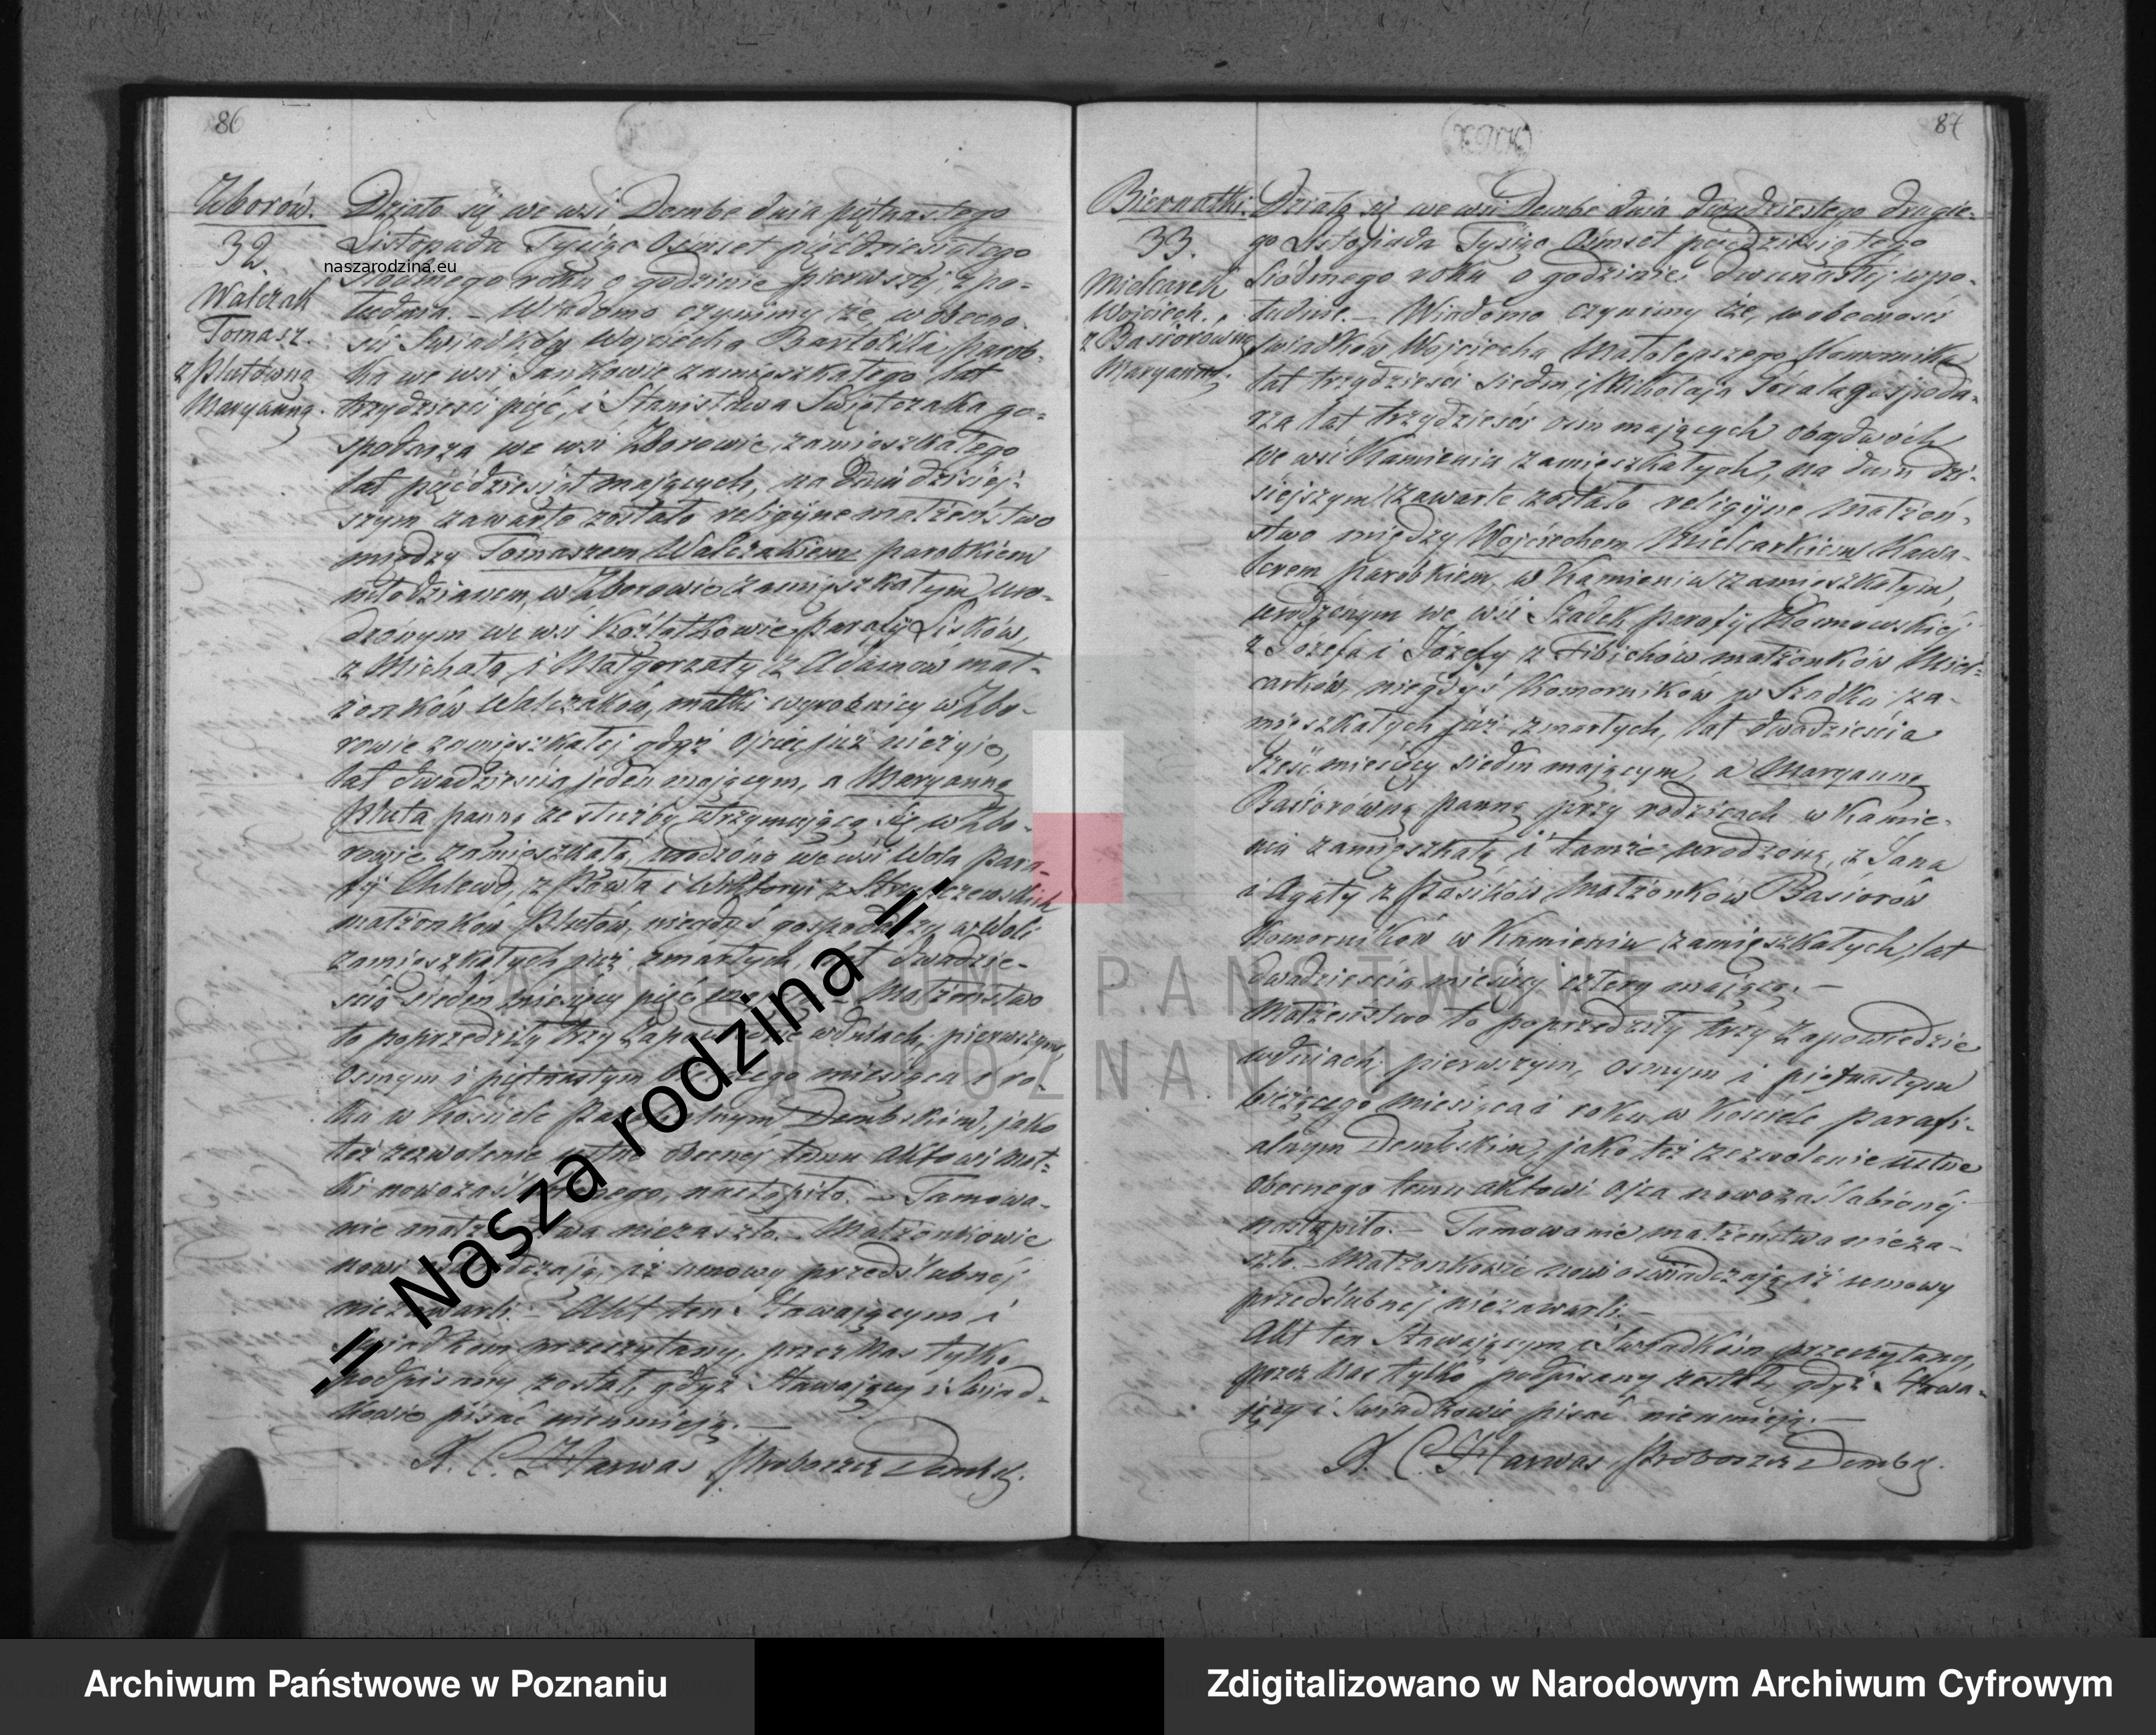 86
Zborów.
32.
Walczak
Tomasz.
z Plutówną
Maryanną.
Działo się we wsi Dembe dnia piętnastego
Listopada Tysiąc Osimset pięćdziesiątego
siódmego roku o godzinie pierwszej z po-
łudnia. – Wiadomo czynimy że, w obecno-
ści Świadków Wojciecha Bartolika, parob-
ka we wsi Jankowie zamieszkałego lat
trzydzieści pięć, i Stanisława Świętczaka go-
spodarza we wsi Zborowie zamieszkałego
lat pięćdziesiąt mających, na dniu dzisiej-
szym zawarte zostało religijne małżeństwo
między Tomaszem Walczakiem parobkiem
młodzianem, w Zborowie zamieszkałym uro-
dzonym we wsi Koźlątkowie parafij Lisków,
z Michała i Małgorzaty z Adamów mał-
żonków Walczaków, matki wyrobnicy w Zbo-
rowie zamieszkałej gdyż ojciec już nieżyje,
lat dwadzieścia jeden mającym, a Maryanną
Pluta panną ze służby utrzymującą się w Zbo-
rowie zamieszkałą, urodzoną we wsi Wola para-
fij Chlewo, z Pawła i Wiktoryi z
małżonków Plutów, niegdyś gospodarzy w Woli
zamieszkałych już zmarłych lat dwadzie-
ścia siedem miesięcy pięć Małżeństwo
to poprzedziły trzy zapowiedzie w dniach, pierwszym,
osmym i piętnastym bieżącego miesiąca i ro-
ku w Kościele Parafialnym Dembskim, jako
też zezwolenie ustne obecnej temu Aktowi mat-
ki nowozaślubionego, nastąpiło. – Tamowa-
nie małżeństwa niezaszło. – Małżonkowie
nowi oświadczają, iż umowy przedślubnej
niezawarli. – Akt ten Stawającym i
Świadkom przeczytany, przez Nas tylko
podpisany został, gdyż Stawający i Świad-
kowie pisać nieumieją. –
X. C. Harwas Proboszcz Dembsk.
87
Biernatki.
33.
Mielcarek
Wojciech.
z Basiorówną
Maryanną.
Działo się we wsi Dembe dnia dwudziestego drugie-
go Listopada Tysiąc Osimset pięćdziesiątego
siódmego roku o godzinie dwunastej w po-
łudnie. – Wiadomo czynimy że, w obecności
świadków Wojciecha Małolepszego Komornika
lat trzydzieści siedm i Mikołaja gospoda-
rza lat trzydzieści ośm mających obydwóch
we wsi Kamieniu zamieszkałych, na dniu dzi-
siejszym zawarte zostało religijne małżeń-
stwo między Wojciechem Mielcarkiem Kawa-
lerem parobkiem, w Kamieniu zamieszkałym,
urodzonym we wsi Szadek parafij Kosmowskiej
z Józefa i Józefy z Fibichów małżonków Miel-
carków, niegdyś Komorników w Szadku za-
mieszkałych już zmarłych, lat dwadzieścia
sześć miesięcy siedm mającym, a Maryanną
Basiorówną panną przy rodzicach w Kamie-
niu zamieszkałą i tamże urodzoną, z Jana
i Agaty z Pasików Małżonków Basiorów
Komorników w Kamieniu zamieszkałych, lat
dwadzieścia miesięcy cztery mającą. –
Małżeństwo to poprzedziły trzy zapowiedzie
w dniach pierwszym, osmym i piętnastym
bieżącego miesiąca i roku w Kościele parafi-
alnym Dembskim, jako też zezwolenie ustne
obecnego temu aktowi ojca nowozaślubionej
nastąpiło. – Tamowanie małżeństwa nieza-
szło. – Małżonkowie nowi oświadczają iż umowy
przedślubnej niezawarli. –
Akt ten Stawającym i Świadkóm przeczytany,
przez Nas tylko podpisany został, gdyż Stawa-
jący i Świadkowie pisać nieumieją. –
X. C. Harwas Proboszcz Dembsk.
naszarodzina.eu
= Nasza rodzina =
ARCHIWUM PAŃSTWOWE
W POZNANIU
Archiwum Państwowe w Poznaniu
Zdigitalizowano w Narodowym Archiwum Cyfrowym